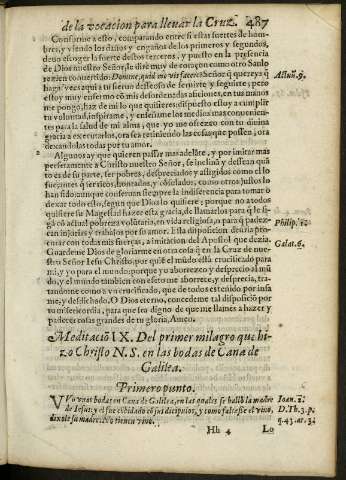 de la vocacion para llevar la Cruz. 487
Conforme a esto, comparando entre si estas suertes de hom-
bres, y viendo los daños y engaños de los primeros y segundos,
de los terceros, y puesto en la presencia
de Dios nuestro Señor, le diré muy de coraçon como otro Saulo
rezien convertido: Domine, quid me vis facere? Señor q̃ querey a q̃
haga? veys aqui a tu siervo desseoso de servirte y seguirte; pero
estoy muy enfermo cõ mis desordenadas aficiones, en tus manos
me pongo, haz de mi lo que quisieres: dispuesto estoy a cumplir
tu voluntad, inspirame, y enseñame los medios mas convenien-
tes para la salud de mi alma, que yo me ofrezco con tu divina
gracia a executarlos, ora sea reteniendo las cosas que posseo, ora
dexandolas todas por tu amor.
Actuũ. 9.
Algunos ay que quieren passar mas adelãte, y por imitar mas
perfetamente a Christo nuestro Señor, se inclinã y dessean quã
to es de su parte, ser pobres, despreciados y afligidos como el lo
fue; antes q̃ ser ricos, honrados, y cõsolados, como otros justos lo
han sido: aunque conservan siempre la indiferencia para tomar o
dexar todo esto, segun que Dios lo quiere; porque no a todos
quiere su Magestad hazer esta gracia, de llamarlos para q̃ le si-
gã cõ actual pobreza volũtaria, en vida religiosa, o para q̃ padez-
can injurias y trabajos por su amor. Esta disposicion devria pro-
curar con todas mis fuerças, a imitacion del Apostol que dezia.
Guardeme Dios de gloriarme en otra cosa q̃ en la Cruz de nue-
stro Señor Iesu Christo, por quiẽ el mũdo está crucificado para
mi, y yo para el mundo: porque yo aborrezco y desprecio al mũ
do, y el mundo tambien con esto me aborrece, y desprecia, tra-
tandome como a vn crucificado, que de todos es tenido por infa-
me, y desdichado. O Dios eterno, concedeme tal disposiciõ por
tu misericordia, para que sea digno de que me llames a hazer y
padecer cosas grandes de tu gloria, Amen.
Philip. 3.
Galat. 6.
Meditaciõ IX. Del primer milagro que hi-
zo Christo N. S. en las bodas de Cana de
Galilea.
Primero punto.
VVo vnas bodas en Cana de Galilea, en las quales se halló la madre
de Iesus, y el fue cõbidado cõ sus dicipulos, y como faltasse el vino,
dixole su madre: No tienen vino.
Ioan. 2.
D. Th. 3. p.
q. 43. ar. 3.
Hh 4 Lo